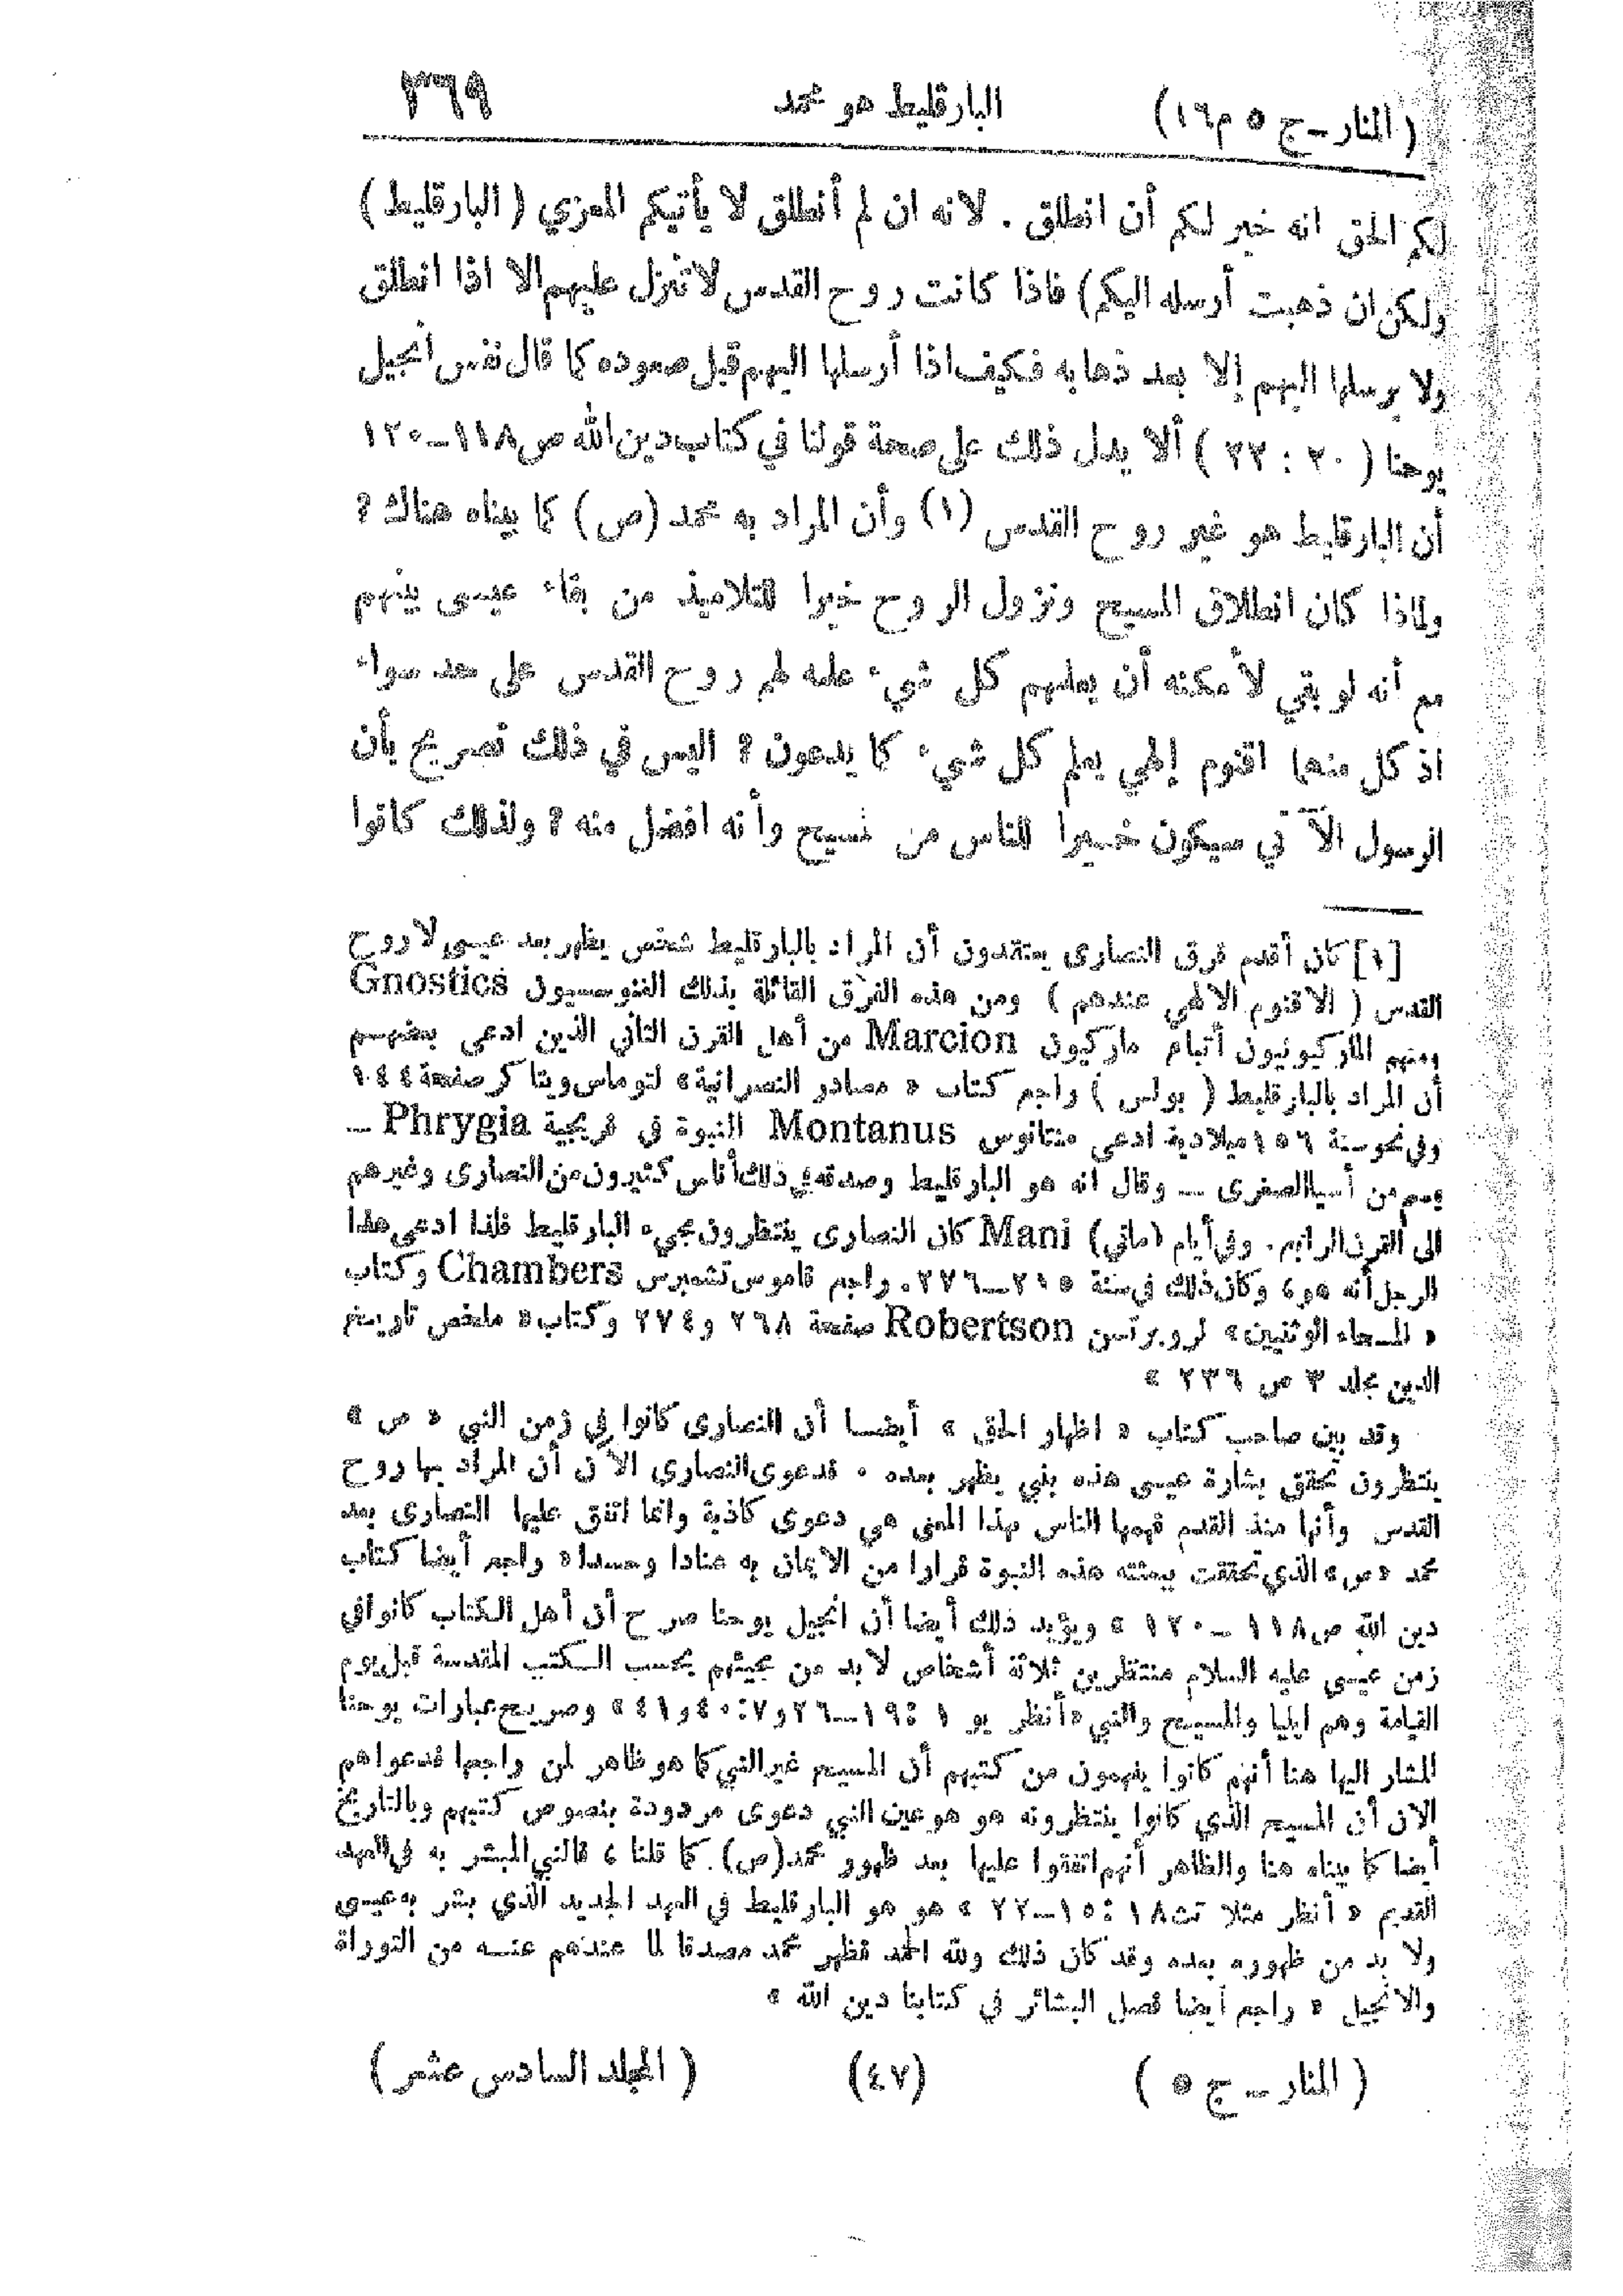 (المنار – ج ٥ م ١٦) البارقليط هو محمد ٣٦٩
لكم الحق انه خير لكم أن انطلق . لانه ان لم أنطلق لا يأتيكم المعزي (البارقليط)
ولكن ان ذهبت أرسله اليكم) فاذا كانت روح القدس لا تنزل عليهم الا اذا انطلق
ولا يرسلها اليهم إلا بعد ذهابه فكيف اذا أرسلها اليهم قبل صعوده كما قال نفس انجيل
يوحنا (٢٠ : ٢٢) ألا يدل ذلك على صحة قولنا في كتاب دين الله ص ١١٨–١٢٠
أن البارقليط هو غير روح القدس (١) وأن المراد به محمد (ص) كما بيناه هناك ؟
ولماذا كان انطلاق المسيح ونزول الروح خيرا للتلاميذ من بقاء عيسى بينهم
مع أنه لو بقي لأمكنه أن يعلمهم كل شيء علمه لهم روح القدس على حد سواء
اذ كل منهما اقنوم إلهي يعلم كل شيء كما يدعون ؟ اليس في ذلك تصريح بأن
الرسول الآتي سيكون خيرا للناس من المسيح وأنه افضل منه ؟ ولذلك كانوا
[١] كان أقدم فرق النصارى يعتقدون أن المراد بالبارقليط شخص يظهر بعد عيسى لا روح
القدس ( الاقنوم الالهي عندهم ) ومن هذه الفرق القائلة بذلك الغنوسسيون Gnostics
ومنهم الماركيونيون أتباع ماركيون Marcion من أهل القرن الثاني الذين ادعى بعضهم
أن المراد بالبارقليط ( بولس ) راجع كتاب « مصادر النصرانية » لتوماس ويتاكر صفحة ١٤٤
وفي نحو سنة ١٥٦ ميلادية ادعى منتانوس Montanus النبوة في فريجية Phrygia –
قسم من أسيا الصغرى – وقال انه هو البارقليط وصدقه في ذلك أناس كثيرون من النصارى وغيرهم
الى القرن الرابع . وفي أيام (ماني) Mani كان النصارى ينتظرون مجيء البارقليط فلذا ادعى هذا
الرجل أنه هو ، وكان ذلك في سنة ٢١٥–٢٧٦ . راجع قاموس تشمبرس Chambers وكتاب
« المسحاء الوثنيين » لروبرتسن Robertson صفحة ٢٦٨ و ٢٧٤ وكتاب « ملخص تاريخ
الدين مجلد ٣ ص ٢٣٦ »
وقد بين صاحب كتاب « اظهار الحق » أيضا أن النصارى كانوا في زمن النبي « ص »
ينتظرون تحقق بشارة عيسى هذه بنبي يظهر بعده . فدعوى النصارى الآن أن المراد بها روح
القدس وأنها منذ القدم فهمها الناس بهذا المعنى هي دعوى كاذبة وانما اتفق عليها النصارى بعد
محمد « ص » الذي تحققت ببعثته هذه النبوة فرارا من الايمان به عنادا وحسدا « راجع أيضا كتاب
دين الله ص ١١٨ – ١٢٠ » ويؤيد ذلك أيضا أن انجيل يوحنا صرح أن أهل الكتاب كانوا في
زمن عيسى عليه السلام منتظرين ثلاثة أشخاص لا بد من مجيئهم بحسب الكتب المقدسة قبل يوم
القيامة وهم ايليا والمسيح والنبي « أنظر يو ١ : ١٩–٢٦ و ٧ : ٤٠ و ٤١ » وصريح عبارات يوحنا
المشار اليها هنا أنهم كانوا يفهمون من كتبهم أن المسيح غير النبي كما هو ظاهر لمن راجعها فدعواهم
الآن أن المسيح الذي كانوا ينتظرونه هو هو عين النبي دعوى مردودة بنصوص كتبهم وبالتاريخ
أيضا كما بيناه هنا والظاهر أنهم اتفقوا عليها بعد ظهور محمد (ص) . كما قلنا ، فالنبي المبشر به في العهد
القديم « أنظر مثلا تث ١٨ : ١٥–٢٢ » هو هو البارقليط في العهد الجديد الذي بشر به عيسى
ولا بد من ظهوره بعده وقد كان ذلك ولله الحمد فظهر محمد مصدقا لما عندهم عنه من التوراة
والانجيل « راجع أيضا فصل البشائر في كتابنا دين الله »
(المنار – ج ٥) (٤٧) (المجلد السادس عشر)